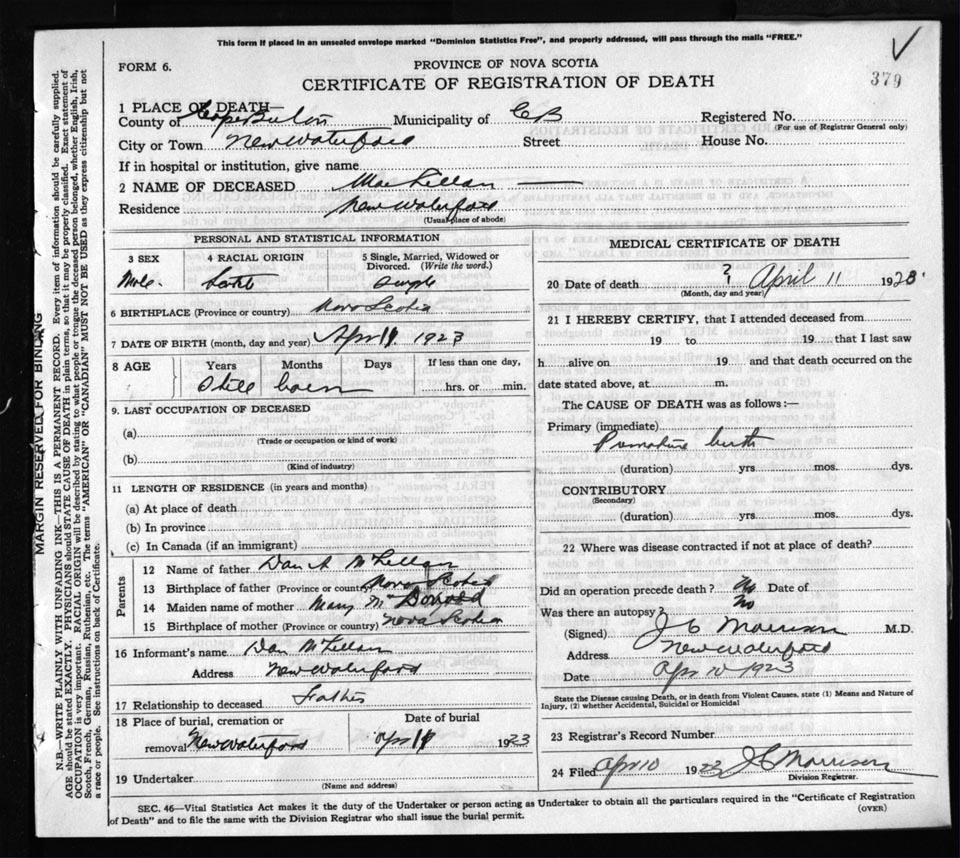 This form if placed in an unsealed envelope marked "Dominion Statistics Free", and properly addressed, will pass through the mails "FREE."
FORM 6.
PROVINCE OF NOVA SCOTIA
379
CERTIFICATE OF REGISTRATION OF DEATH
1 PLACE OF DEATH—
County of Cape Breton Municipality of CB Registered No.
(For use of Registrar General only)
City or Town New Waterford Street House No.
If in hospital or institution, give name
2 NAME OF DECEASED MacLellan
Residence New Waterford
(Usual place of abode)
PERSONAL AND STATISTICAL INFORMATION
3 SEX 4 RACIAL ORIGIN 5 Single, Married, Widowed or Divorced. (Write the word.)
Male. Scotch Single
6 BIRTHPLACE (Province or country) Nova Scotia
7 DATE OF BIRTH (month, day and year) Apr 11 1923
8 AGE Years Months Days If less than one day,
Still born hrs. or min.
9. LAST OCCUPATION OF DECEASED
(a)
(Trade or occupation or kind of work)
(b)
(Kind of industry)
11 LENGTH OF RESIDENCE (in years and months)
(a) At place of death
(b) In province
(c) In Canada (if an immigrant)
Parents
12 Name of father Dan A McLellan
13 Birthplace of father (Province or country) Nova Scotia
14 Maiden name of mother Mary McDonald
15 Birthplace of mother (Province or country) Nova Scotia
16 Informant's name Dan McLellan
Address New Waterford
17 Relationship to deceased Father
18 Place of burial, cremation or Date of burial
removal New Waterford Apr 11 1923
19 Undertaker
(Name and address)
MEDICAL CERTIFICATE OF DEATH
20 Date of death ? April 11 1923
(Month, day and year)
21 I HEREBY CERTIFY, that I attended deceased from
19 to 19 that I last saw
h alive on 19 and that death occurred on the
date stated above, at m.
The CAUSE OF DEATH was as follows:—
Primary (immediate)
Premature birth
(duration) yrs mos. dys.
CONTRIBUTORY
(Secondary)
(duration) yrs. mos. dys.
22 Where was disease contracted if not at place of death?
Did an operation precede death? No Date of
Was there an autopsy? No
(Signed) J C Morrison M.D.
Address New Waterford
Date Apr 10 1923
State the Disease causing Death, or in death from Violent Causes, state (1) Means and Nature of
Injury, (2) whether Accidental, Suicidal or Homicidal
23 Registrar's Record Number
24 Filed Apr 10 1923 J C Morrison
Division Registrar.
SEC. 46—Vital Statistics Act makes it the duty of the Undertaker or person acting as Undertaker to obtain all the particulars required in the "Certificate of Registration
of Death" and to file the same with the Division Registrar who shall issue the burial permit.
(OVER)
MARGIN RESERVED FOR BINDING
N.B.—WRITE PLAINLY WITH UNFADING INK—THIS IS A PERMANENT RECORD. Every item of information should be carefully supplied.
AGE should be stated EXACTLY. PHYSICIANS should STATE CAUSE OF DEATH in plain terms, so that it may be properly classified. Exact statement of
OCCUPATION is very important. RACIAL ORIGIN will be described by stating to what people or tongue the deceased person belonged, whether English, Irish,
Scotch, French, German, Russian, Ruthenian, etc. The terms "AMERICAN" OR "CANADIAN" MUST NOT BE USED as they express citizenship but not
a race or people. See instructions on back of Certificate.